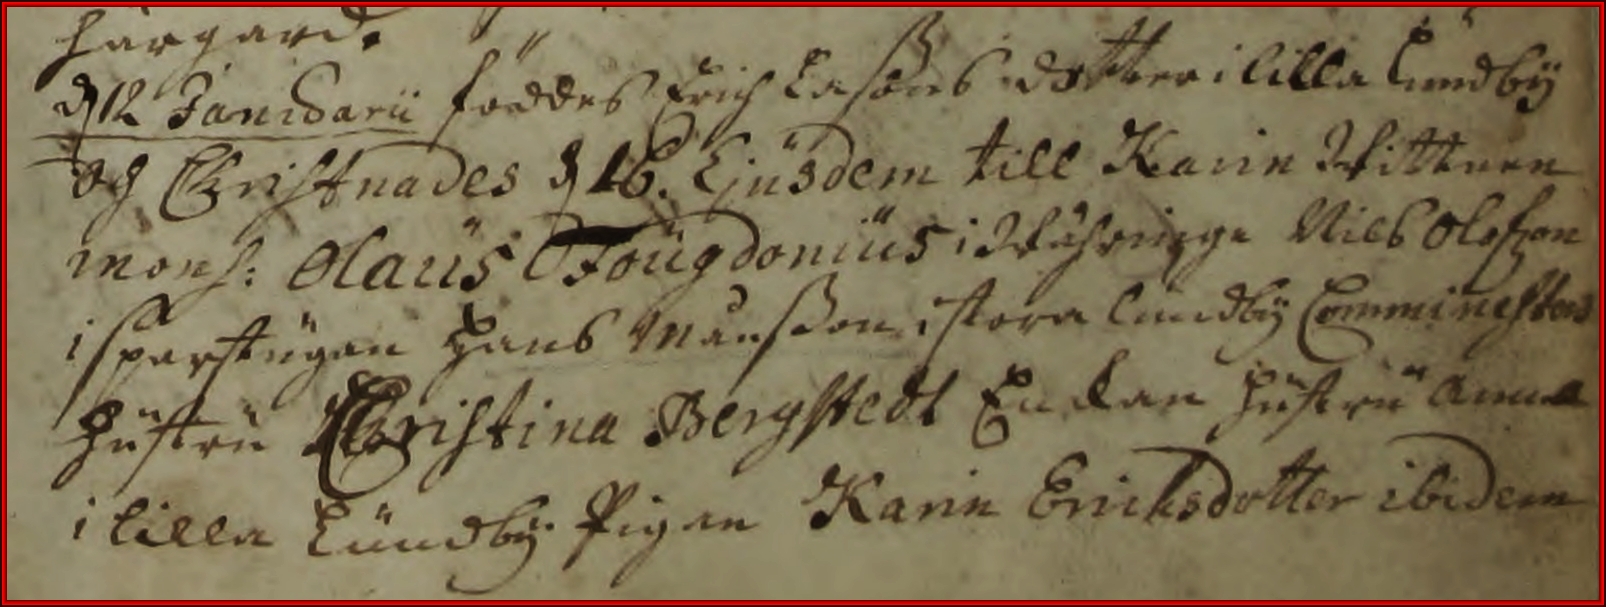 hargard.
d 12 Januarii föddes Erich Larßons dotter i lilla Lundbÿ
och Christnades d 16. Ejusdem till Karin Wittnen
mons: Olaüs Fougdoniüs i Wåhringe Nils Olofzon
i sparstügan Hans Månßon i stora Lundbÿ Comministers
hüstrü Christina Bergstedt Enckan hüstrü Anna
i lilla Lündbÿ Pigan Karin Ericksdotter ibidem